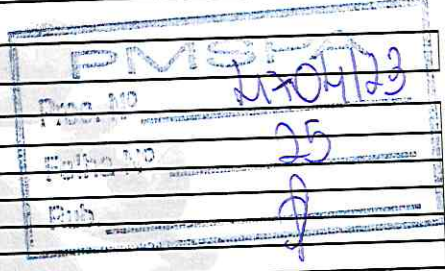 PMSPA
Proc. Nº 4704/23
Folha Nº 25
Rub.